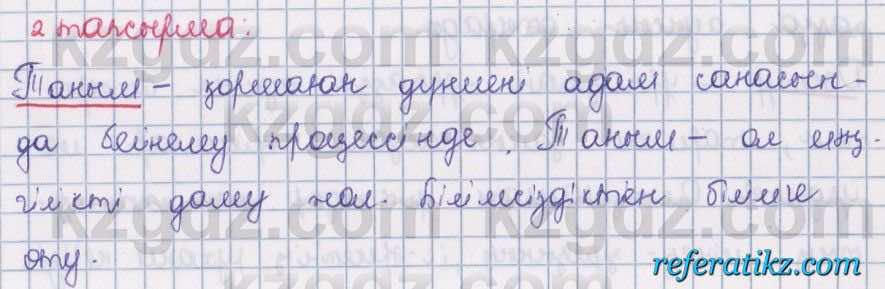 2 тапсырма:
Таным – қоршаған дүниені адам санасын-
да бейнелеу процессінде. Таным – ол мәң-
гілікті даму жол. Білімсіздіктен білімге
өту.
referatikz.com